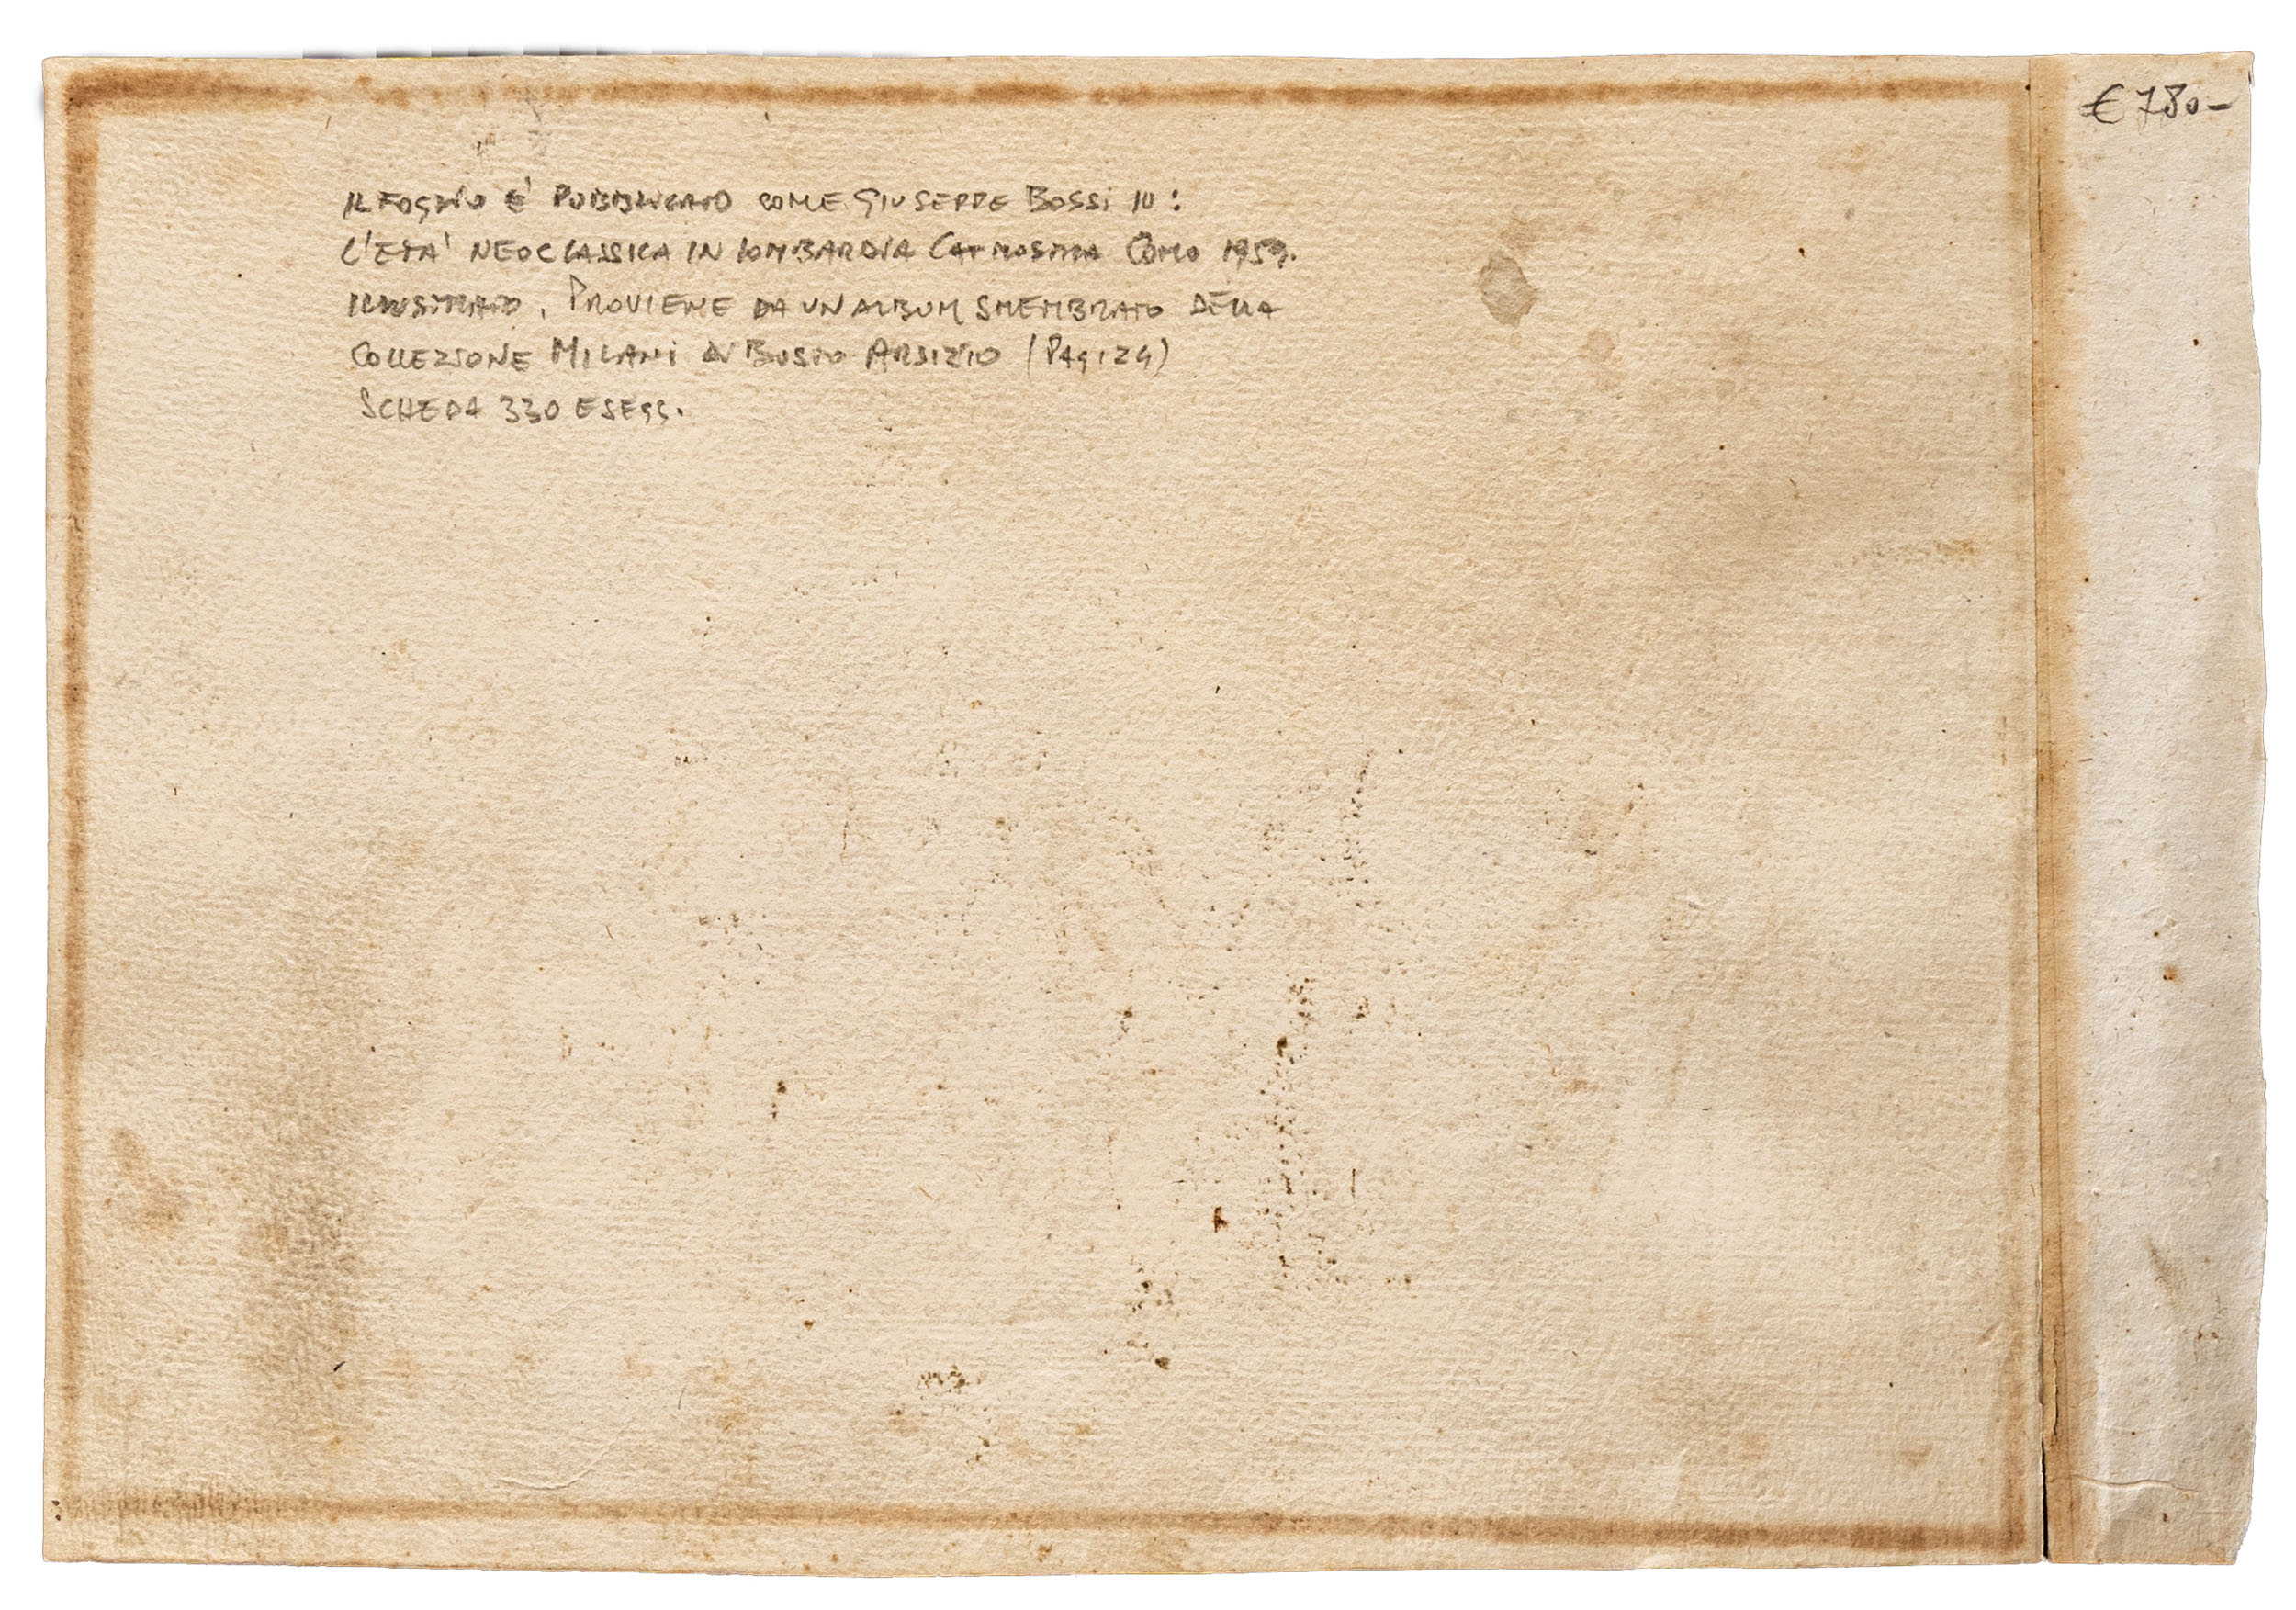 € 780-
IL FOGLIO E' PUBBLICATO COME GIUSEPPE BOSSI IN:
L'ETA' NEOCLASSICA IN LOMBARDIA CAT MOSTRA COMO 1959.
ILLUSTRATO. PROVIENE DA UN ALBUM SMEMBRATO DELLA
COLLEZIONE MILANI DI BUSTO ARSIZIO (PAG 124)
SCHEDA 330 E SEGG.